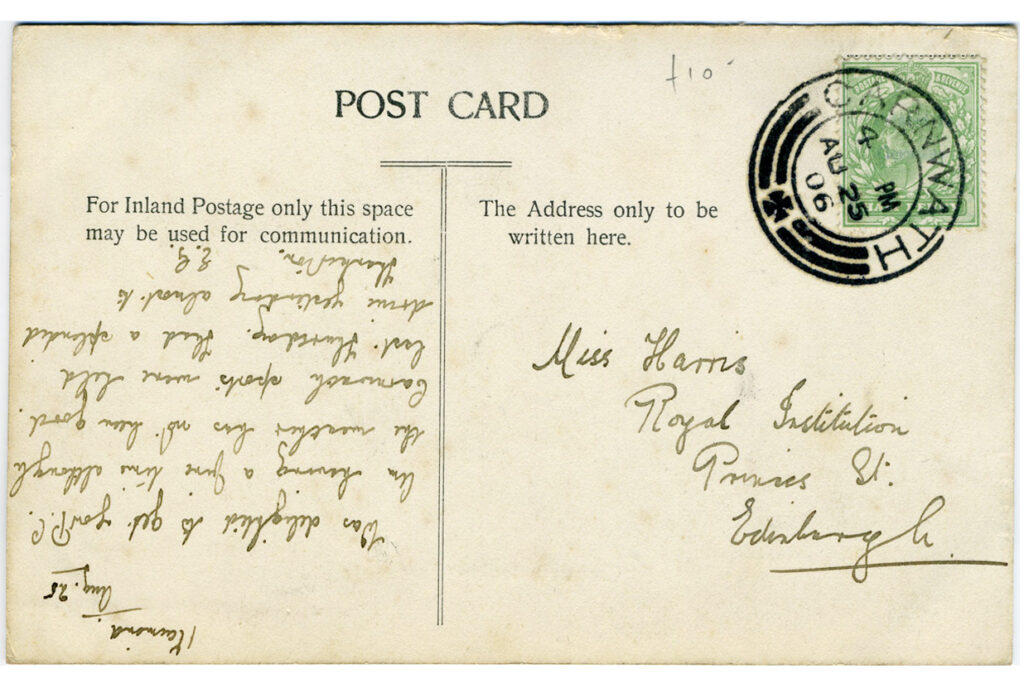 £10
POST CARD
For Inland Postage only this space
may be used for communication.
The Address only to be
written here.
POSTAGE & REVENUE
CARNWATH
4 PM
AU 25
06
Miss Harris
Royal Institution
Princes St.
Edinburgh.
Kaimend
Aug. 25
Was delighted to get your P.C.
Am having a fine time although
the weather has not been good.
Carnwath sports were held
last Thursday. Had a splendid
drive yesterday almost to
Thankerton. E.G.